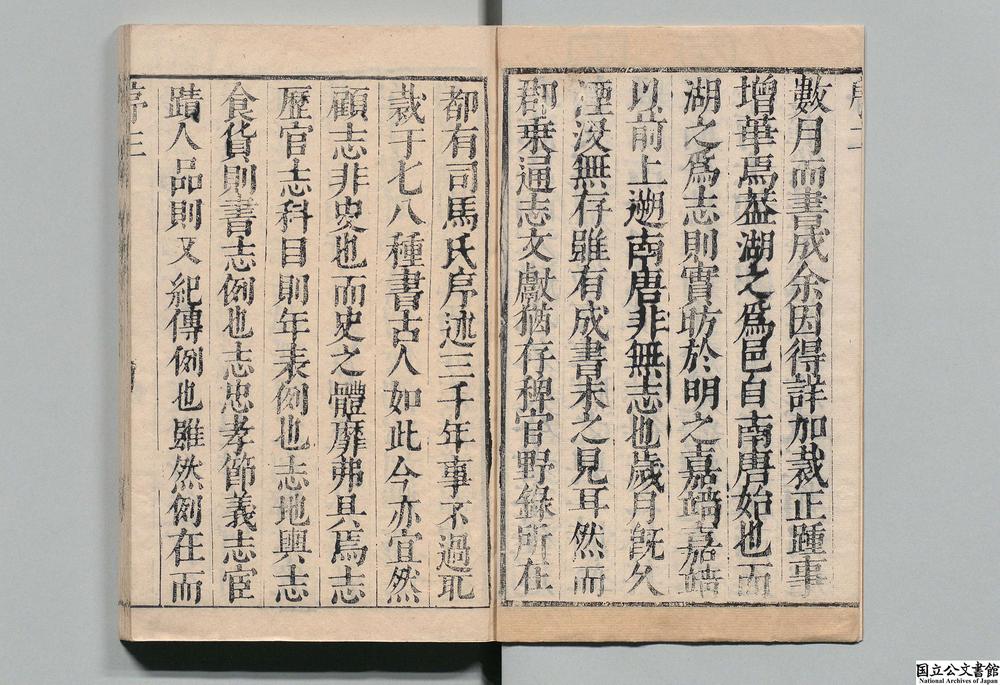 序二
數月而書成余因得詳加裁正踵事
增華焉葢湖之爲邑自南唐始也而
湖之爲志則實昉於明之嘉靖嘉靖
以前上遡南唐非無志也歲月旣久
湮沒無存雖有成書未之見耳然而
郡乗通志文獻猶存稗官野錄所在
都有司馬氏序述三千年事不過取
裁于七八種書古人如此今亦宜然
顧志非史也而史之體靡弗具焉志
歷官志科目則年表例也志地輿志
食貨則書志例也志忠孝節義志宦
蹟人品則又紀傳例也雖然例在而
序三
国立公文書館
National Archives of Japan